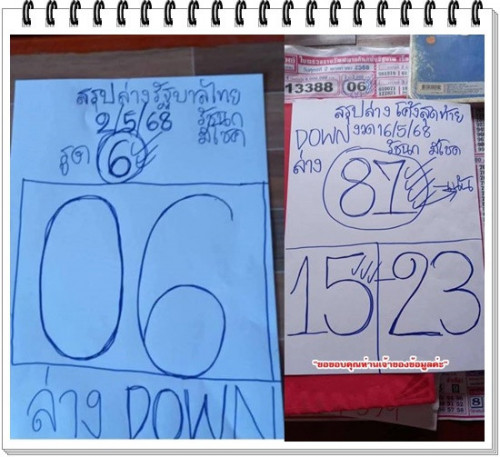 สรุปล่างรัฐบาลไทย
2/5/68
รัชนก
มีโชค
รูด 6
06
ล่าง DOWN
2568
13388 06
สรุปล่าง โค้งสุดท้าย
DOWN งวด16/5/68
ล่าง
รัชนก มีโชค
87
เน้น
15 23
"ขอขอบคุณท่านเจ้าของข้อมูลค่ะ"